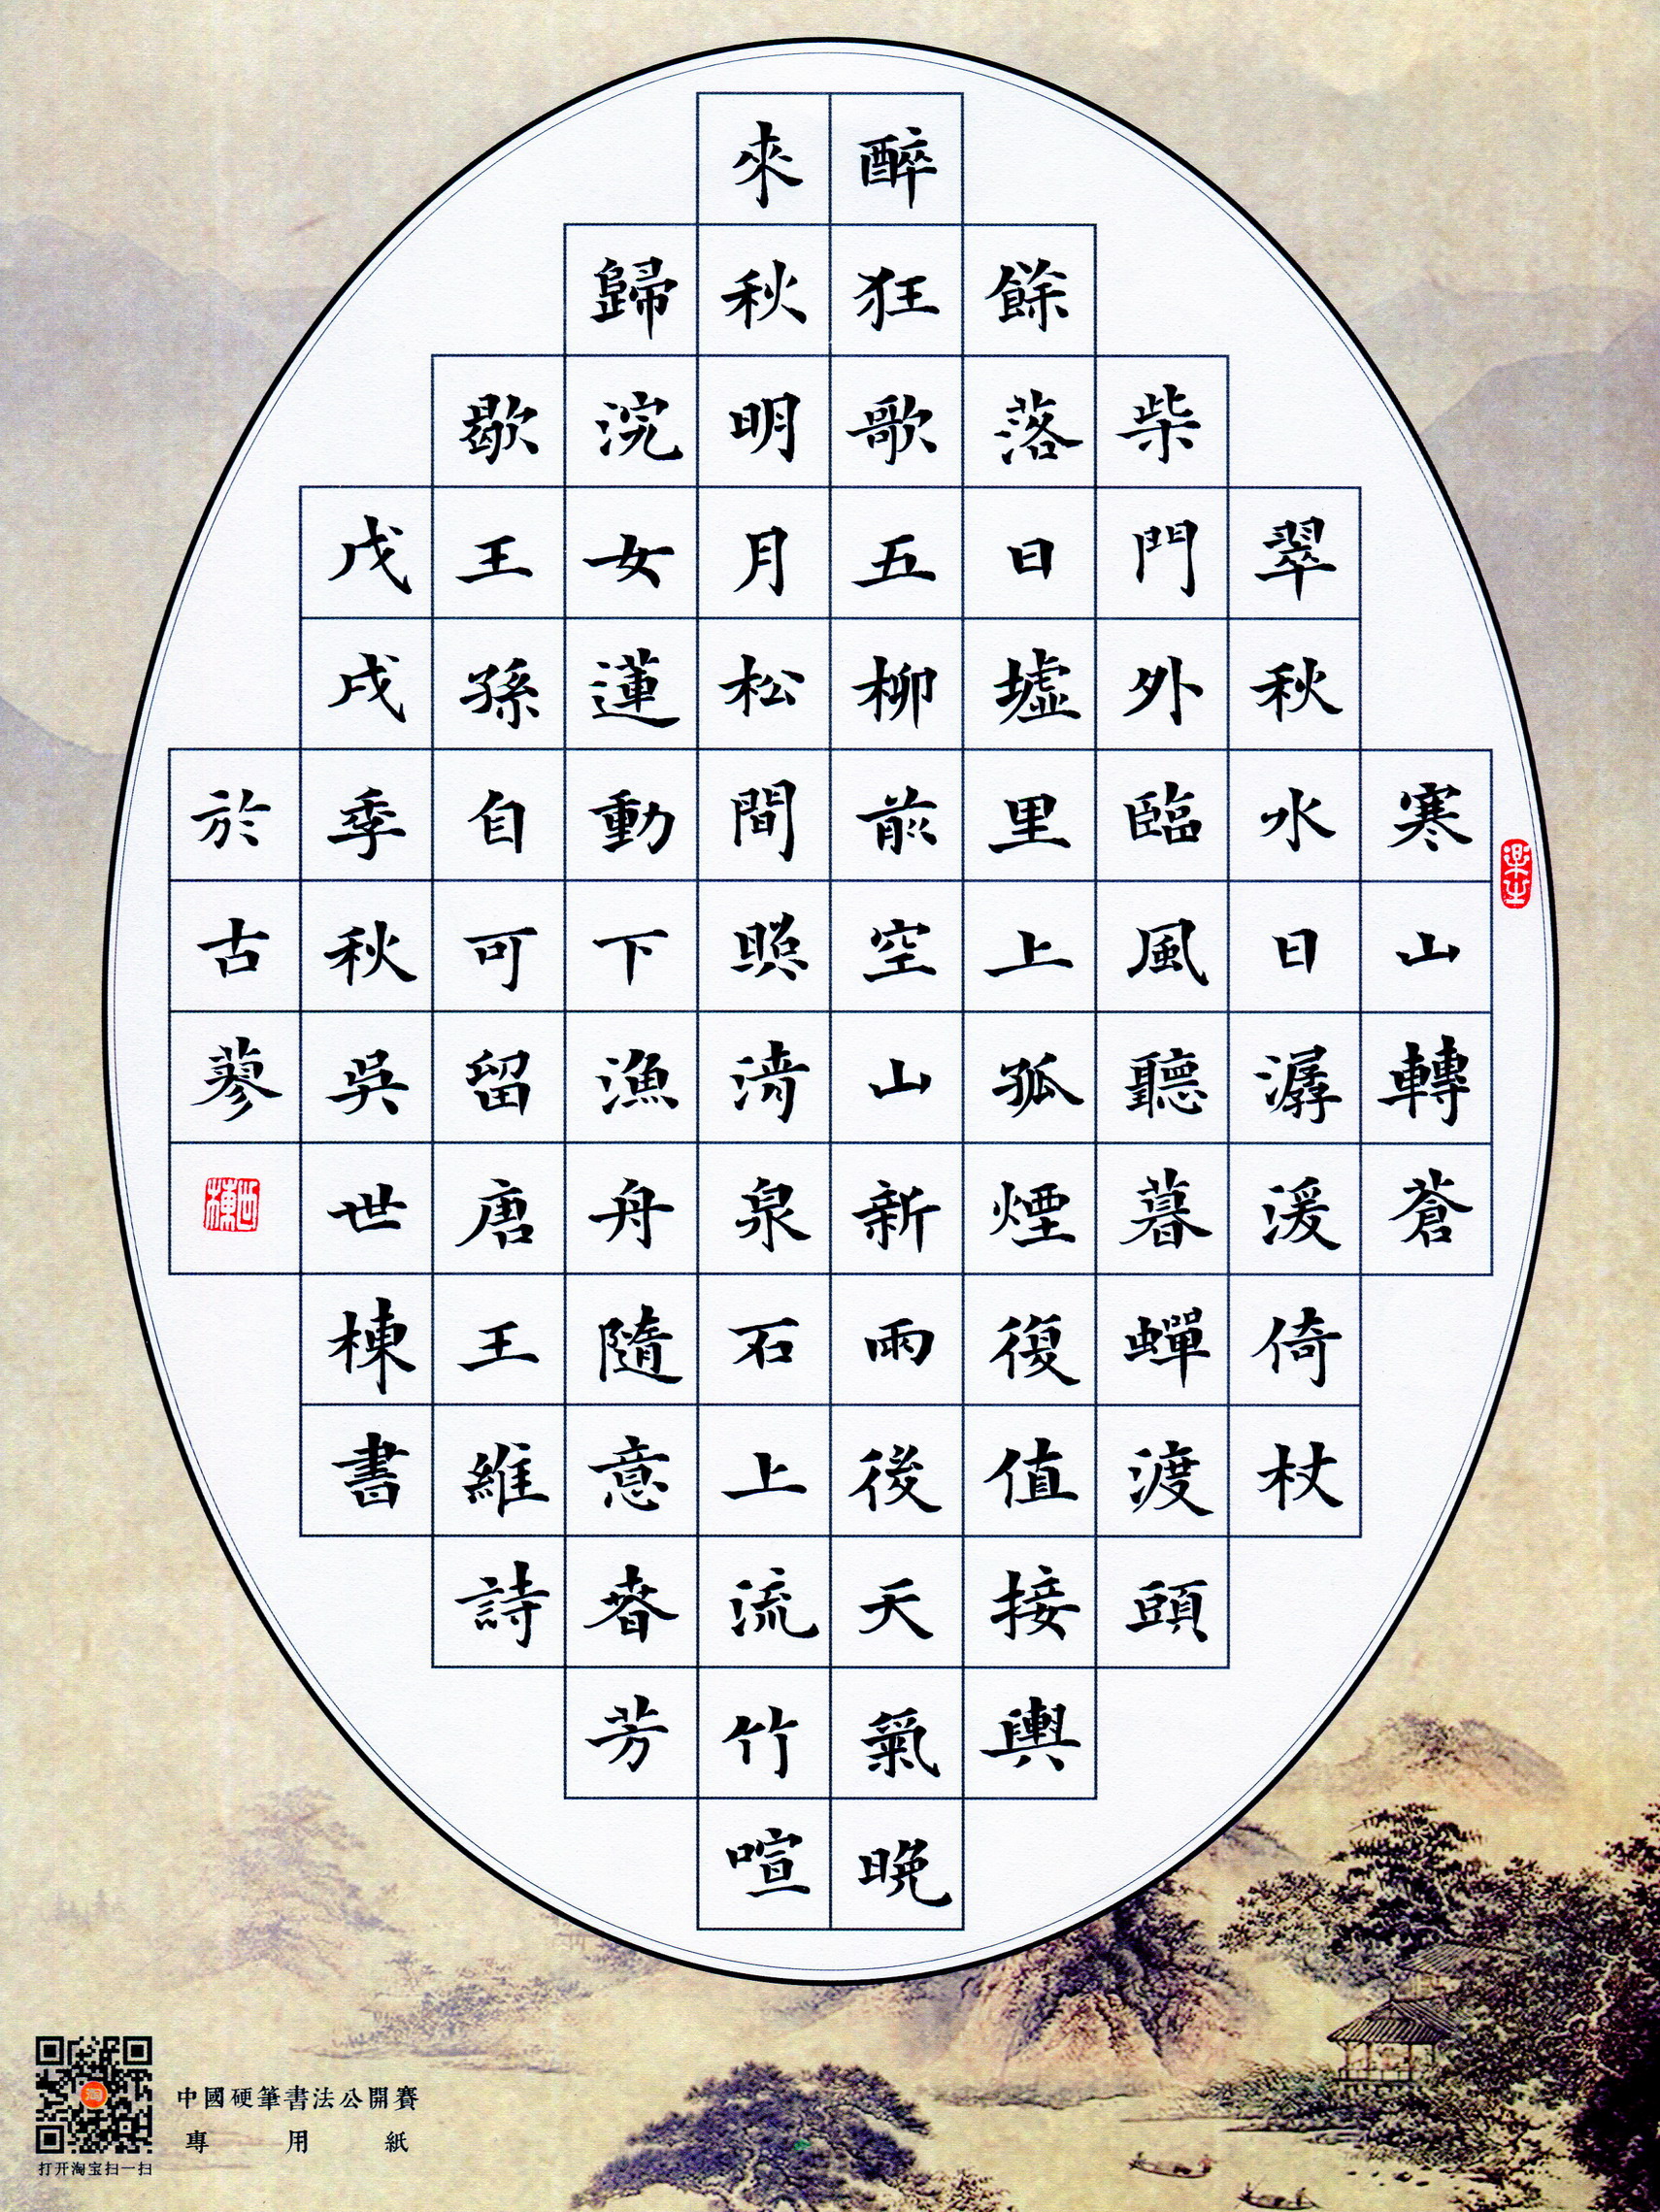 寒山轉蒼
翠秋水日潺湲倚杖
柴門外臨風聽暮蟬渡頭
餘落日墟里上孤煙復值接輿
醉狂歌五柳前空山新雨後天氣晚
來秋明月松間照清泉石上流竹喧
歸浣女蓮動下漁舟隨意春芳
歇王孫自可留唐王維詩
戊戌季秋吳世棟書
於古蓼
中國硬筆書法公開賽
專用紙
打开淘宝扫一扫